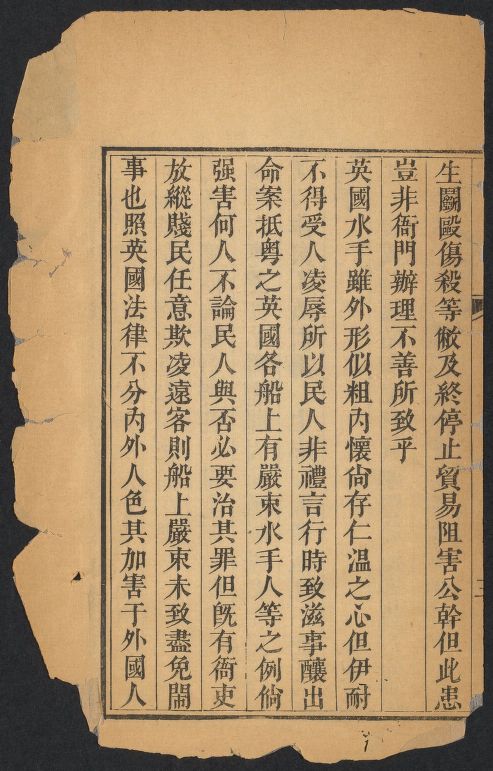 生鬬毆傷殺等敝及終停止貿易阻害公幹但此患
豈非衙門辦理不善所致乎
英國水手雖外形似粗內懷尙存仁溫之心但伊耐
不得受人凌辱所以民人非禮言行時致滋事釀出
命案抵粵之英國各船上有嚴束水手人等之例倘
强害何人不論民人與否必要治其罪但旣有衙吏
放縱賤民任意欺凌遠客則船上嚴束未致盡免鬧
事也照英國法律不分內外人色其加害于外國人